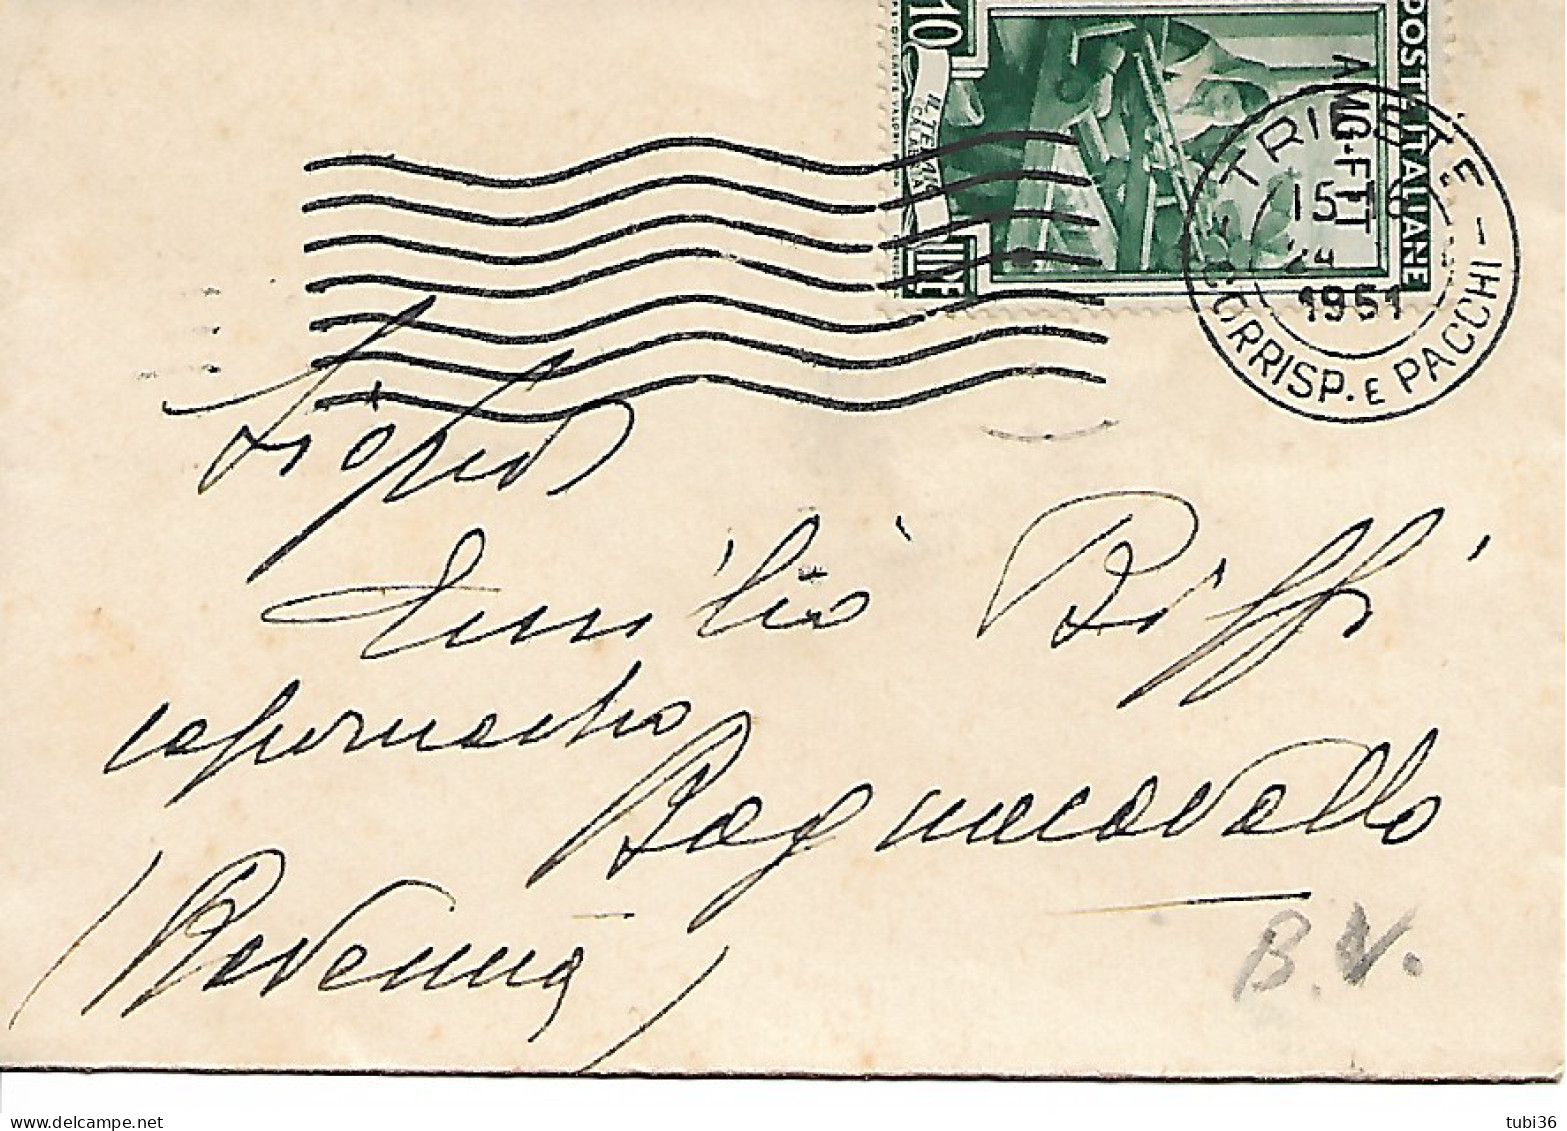 10 LIRE
IL TELAIO
CALABRIA
POSTE ITALIANE
AMG-FTT
TRIESTE
15
1951
CORRISP. E PACCHI
Emilio Biffi
capomastro
Bagnacavallo
(Ravenna)
B.V.
delcampe.net
tubi36